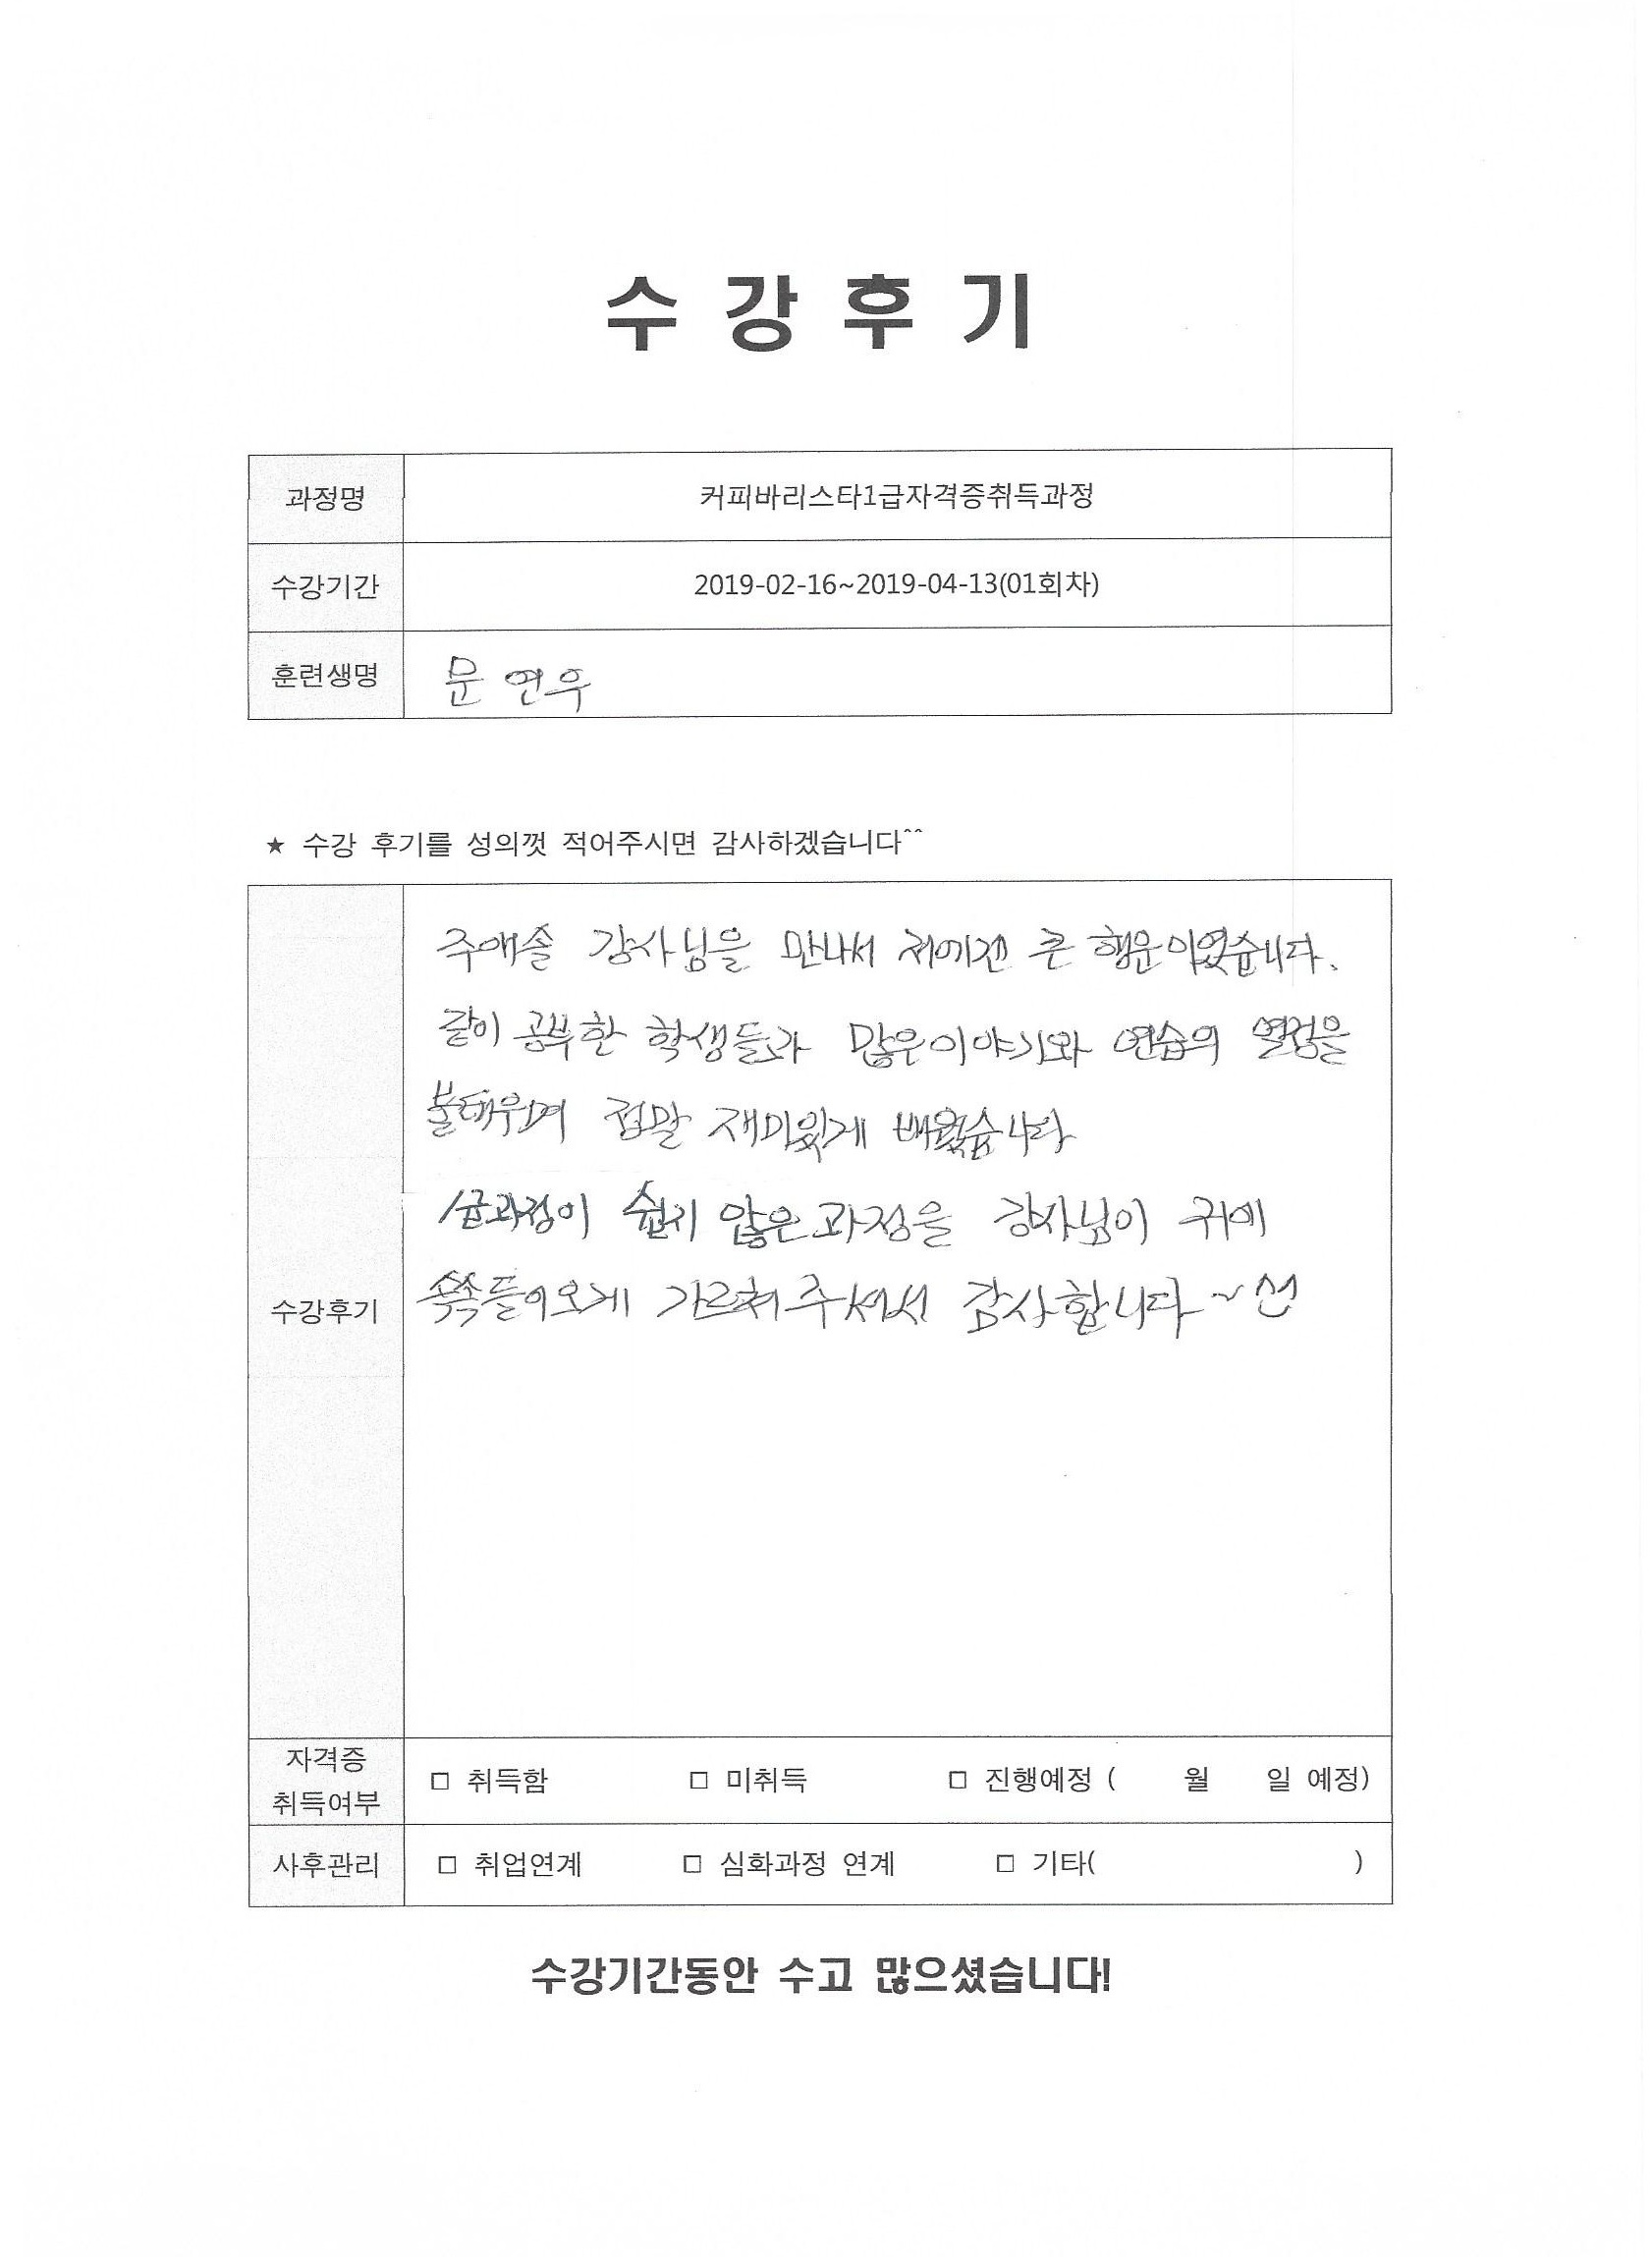 수 강 후 기
과정명 커피바리스타1급자격증취득과정
수강기간 2019-02-16~2019-04-13(01회차)
훈련생명 문 연우
★ 수강 후기를 성의껏 적어주시면 감사하겠습니다^^
주애솔 강사님을 만나서 저에겐 큰 행운이었습니다.
같이 공부한 학생들과 많은이야기와 연습의 열정을
불태우며 정말 재미있게 배웠습니다
1급과정이 쉽지 않은 과정을 강사님이 귀에
수강후기
쏙쏙들어오게 가르쳐주셔서 감사합니다~
자격증
취득여부
□ 취득함 □ 미취득 □ 진행예정 ( 월 일 예정)
사후관리 □ 취업연계 □ 심화과정 연계 □ 기타( )
수강기간동안 수고 많으셨습니다!